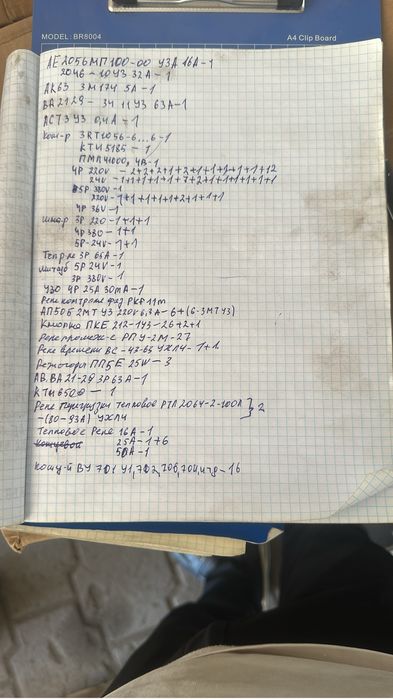 MODEL: BR8004
A4 Clip Board
АЕ2056МП100-00 У3А 16А-1
2046-10У3 32А-1
АК63 3М174 5А-1
ВА2129-34 11У3 63А-1
АСТ3У3 0,4А-1
Кон-р 3RT1056-6...6-1
КТИ5185-1
ПМЛ4100
4Р 220V -2+2+2+1+2+1+1+1+1+1+12
24V -1+1+1+1+1+7+2+1+1+1+1+1+1
5Р 380V-1
220V-1+1+1+1+1+2+1+1+1
4Р 36V-1
3Р 220-1+1+1
4Р380-1+1
5Р-24V-1+1
3Р 65А-1
5Р 24V-1
3Р 380V-1
УЗО 4Р 25А 30mА-1
Реле контроля фаз РКФ 11m
АП50Б 2МТ У3 220V 6,3А-6+(6-3МТУ3)
Кнопка ПКЕ 212-1У3-26+2+1
РПУ-2М-27
Реле времени ВС-43-65 УХЛ4-1+1
ППБЕ 25W-3
АВ.ВА21-29 3Р63А-1
КТИ6500-1
Реле тепловое РТЛ2064-2-100А } 2
-(80-93А) УХЛ4
Тепловое Реле 16А-1
25А-1+6
50А-1
ВУ 701 У1,702,706,704,-16